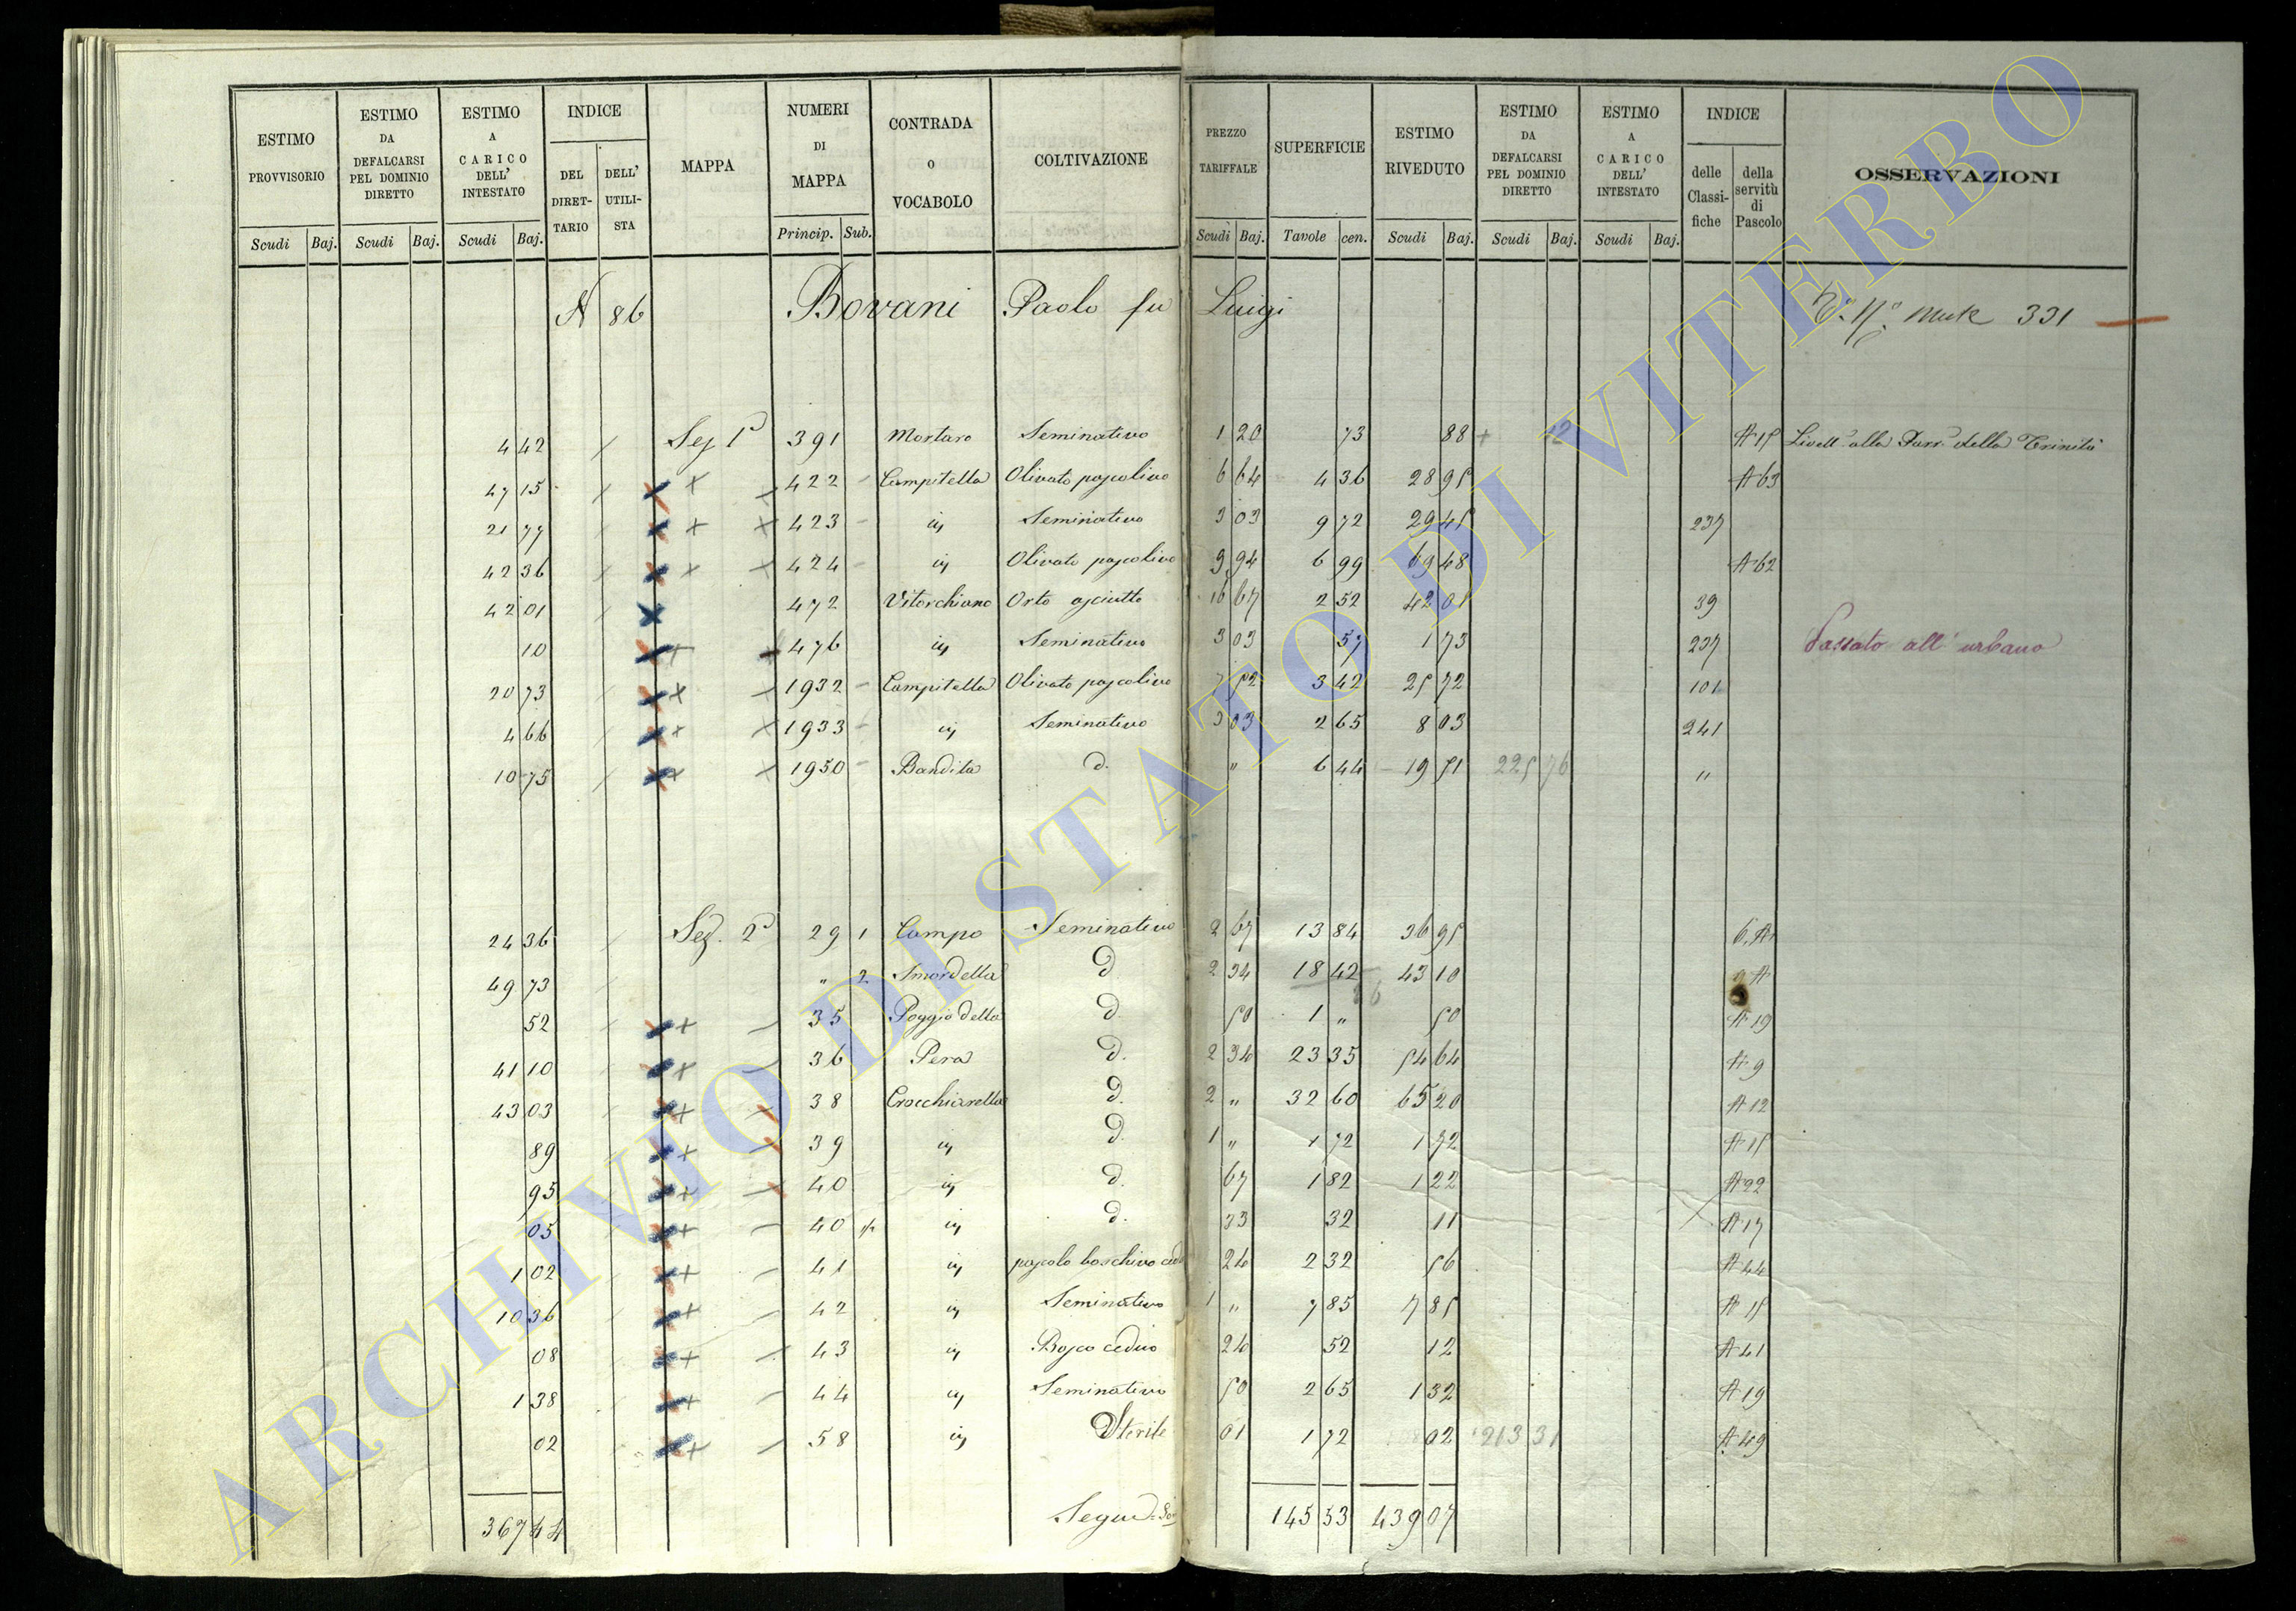 ESTIMO PROVVISORIO | ESTIMO DA DEFALCARSI PEL DOMINIO DIRETTO | ESTIMO A CARICO DELL' INTESTATO | INDICE DEL DIRET-TARIO | DELL' UTILI-STA | MAPPA | NUMERI DI MAPPA | CONTRADA O VOCABOLO | COLTIVAZIONE | PREZZO TARIFFALE | SUPERFICIE | ESTIMO RIVEDUTO | ESTIMO DA DEFALCARSI PEL DOMINIO DIRETTO | ESTIMO A CARICO DELL' INTESTATO | INDICE delle Classi-fiche | della servitù di Pascolo | OSSERVAZIONI
Scudi Baj. | Scudi Baj. | Scudi Baj. | Princip. Sub. | Scudi Baj. | Tavole cen. | Scudi Baj. | Scudi Baj. | Scudi Baj.
N 86 Bovani Paolo fu Luigi 331
4 42 Sez 1ª 391 Mortaro Seminativo 1 20 73 88 A 15 Livell. alla Parr. della Trinità
47 15 422 Campitella Olivato pascolivo 6 64 4 36 28 95 A 63
21 77 423 id Seminativo 3 03 9 72 29 45 237
42 36 424 id Olivato pascolivo 9 94 6 99 69 48 A 62
42 01 472 Vitorchiano Orto asciutto 16 67 2 52 42 01 39
10 476 id Seminativo 3 03 57 1 73 237 Passato all' urbano
20 73 1932 Campitella Olivato pascolivo 7 52 3 42 25 72 101
4 66 1933 id Seminativo 3 03 2 65 8 03 241
10 75 1950 Bandita d. " 6 44 19 51 225 76 "
24 36 Sez. 2ª 29 1 Campo Seminativo 2 67 13 84 36 95
49 73 " 2 Smordella d 2 34 18 42 43 10
52 35 Poggio della d. 50 1 " 50 A 19
41 10 36 Pera d. 2 34 23 35 54 64 A 9
43 03 38 Crocchiarella d. 2 " 32 60 65 20 A 12
89 39 id d. 1 " 1 72 1 72 A 15
95 40 id d. 67 1 82 1 22 A 22
05 40 id d. 33 32 11 A 17
1 02 41 id pascolo boschivo 24 2 32 56 A 44
10 36 42 id Seminativo 1 " 7 85 7 85 A 15
08 43 id Bosco ceduo 24 52 12 A 41
1 38 44 id Seminativo 50 2 65 1 32 A 19
02 58 id Sterile 01 1 72 02 213 31 A 49
367 44 145 53 439 07
ARCHIVIO DI STATO DI VITERBO